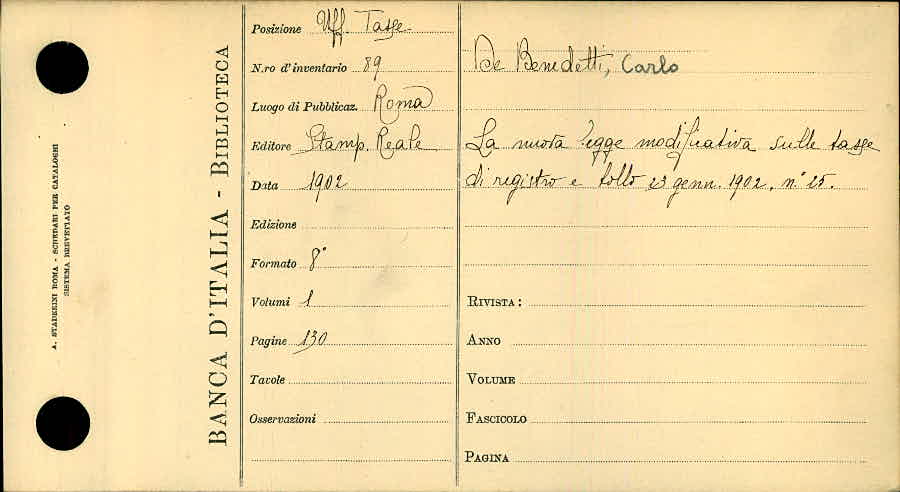 A. STADERINI ROMA - SCHEDARI PER CATALOGHI
SISTEMA BREVETTATO
BANCA D'ITALIA - BIBLIOTECA
Posizione Uff. Tasse
N.ro d'inventario 89
Luogo di Pubblicaz. Roma
Editore Stamp. Reale
Data 1902
Edizione
Formato 8°
Volumi 1
Pagine 130
Tavole
Osservazioni
De Benedetti, Carlo
La nuova legge modificativa sulle tasse
di registro e bollo 23 genn. 1902. n° 25.
RIVISTA:
ANNO
VOLUME
FASCICOLO
PAGINA